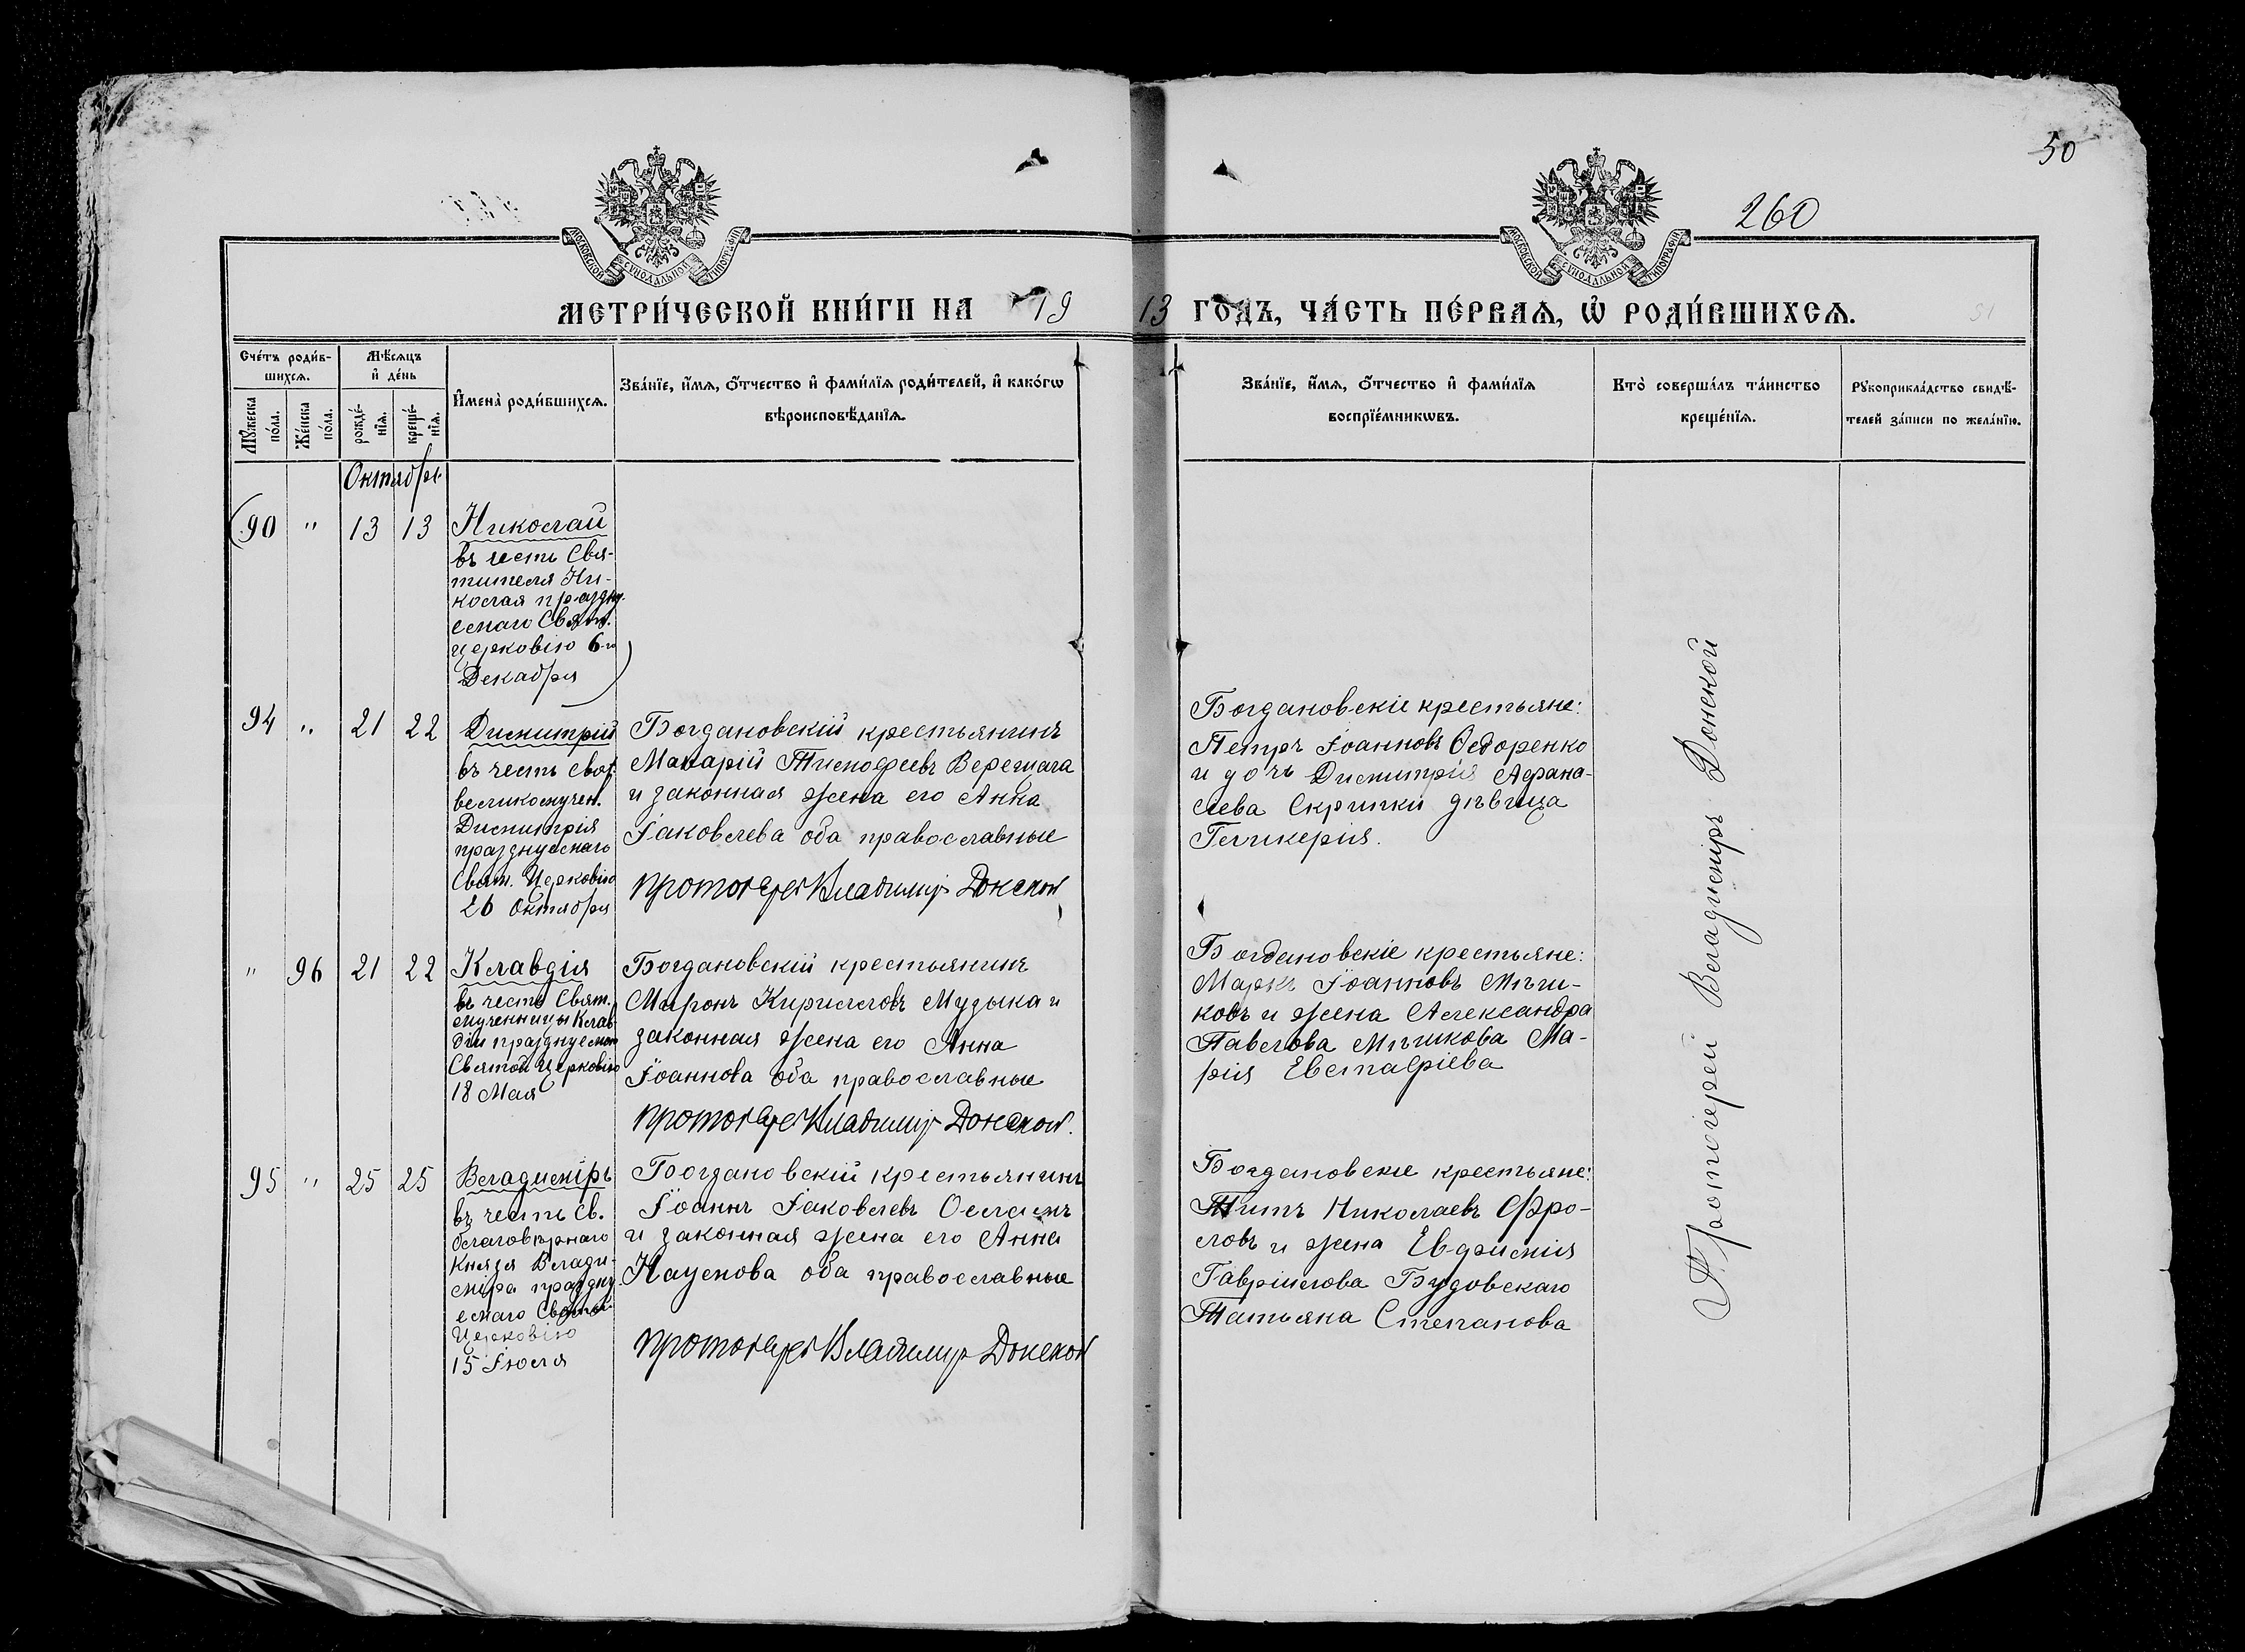 50
260
МОСКОВСКОЙ СѴНОДАЛЬНОЙ ТИПОГРАФІИ
МОСКОВСКОЙ СѴНОДАЛЬНОЙ ТИПОГРАФІИ
МЕТРИ́ЧЕСКОЙ КНИ́ГИ НА 1913 ГО́ДЪ, ЧА́СТЬ ПЕ́РВАѦ, Ѡ҆ РОДИ́ВШИХСѦ.
Сче́тъ роди́в-
шихсѧ.
Мꙋ́жеска по́ла.
Же́нска по́ла.
Мѣ́сѧцъ
и҆ де́нь
рожде́-
нїѧ.
креще́-
нїѧ.
И҆мена̀ роди́вшихсѧ.
Зва́нїе, и҆́мѧ, ѻ҆́тчество и҆ фами́лїѧ роди́телей, и҆ како́гѡ
вѣроисповѣ́данїѧ.
Зва́нїе, и҆́мѧ, ѻ҆́тчество и҆ фами́лїѧ
воспрїе́мникѡвъ.
Кто̀ соверша́лъ та́инство
креще́нїѧ.
Рꙋкоприкла́дство свидѣ́-
телей за́писи по жела́нїю.
Октября
90 " 13 13 Николай
въ честь Свя-
тителя Ни-
колая праздну-
емаго Свят.
церковію 6-го
Декабря
94 " 21 22 Димитрій
въ честь Свят.
великомучен.
Димитрія
празднуемаго
Свят. Церковію
26 Октября
Богдановскій крестьянинъ
Макарій Тимофеевъ Веремага
и законная жена его Анна
Іаковлева оба православные
Протоіерей Владимиръ Донской
Богдановскіе крестьяне:
Петръ Іоанновъ Ѳедоренко
и дочь Димитрія Афана-
сіева Скрипки дѣвица
Гликерія.
" 96 21 22 Клавдія
въ честь Свят.
мученницы Клав-
діи празднуемой
Святой Церковію
18 Мая
Богдановскій крестьянинъ
Миронъ Кирилловъ Музыка и
законная жена его Анна
Іоаннова оба православные
Протоіерей Владимиръ Донской.
Богдановскіе крестьяне:
Маркъ Іоанновъ Мѣши-
ковъ и жена Александра
Павлова Мѣшкова Ма-
рія Евстафіева
95 " 25 25 Владиміръ
въ честь Св.
благовѣрнаго
Князя Влади-
міра праздну
емаго Святой
Церковію
15 Іюля
Богдановскій крестьянинъ
Іоаннъ Іаковлевъ
и законная жена его Анна
Наумова оба православные
Протоіерей Владимиръ Донской
Богдановскіе крестьяне:
Титъ Николаевъ Фро-
ловъ и жена Евфимія
Гавріилова Будовскаго
Татьяна Степанова
Протоіерей Владимиръ Донской